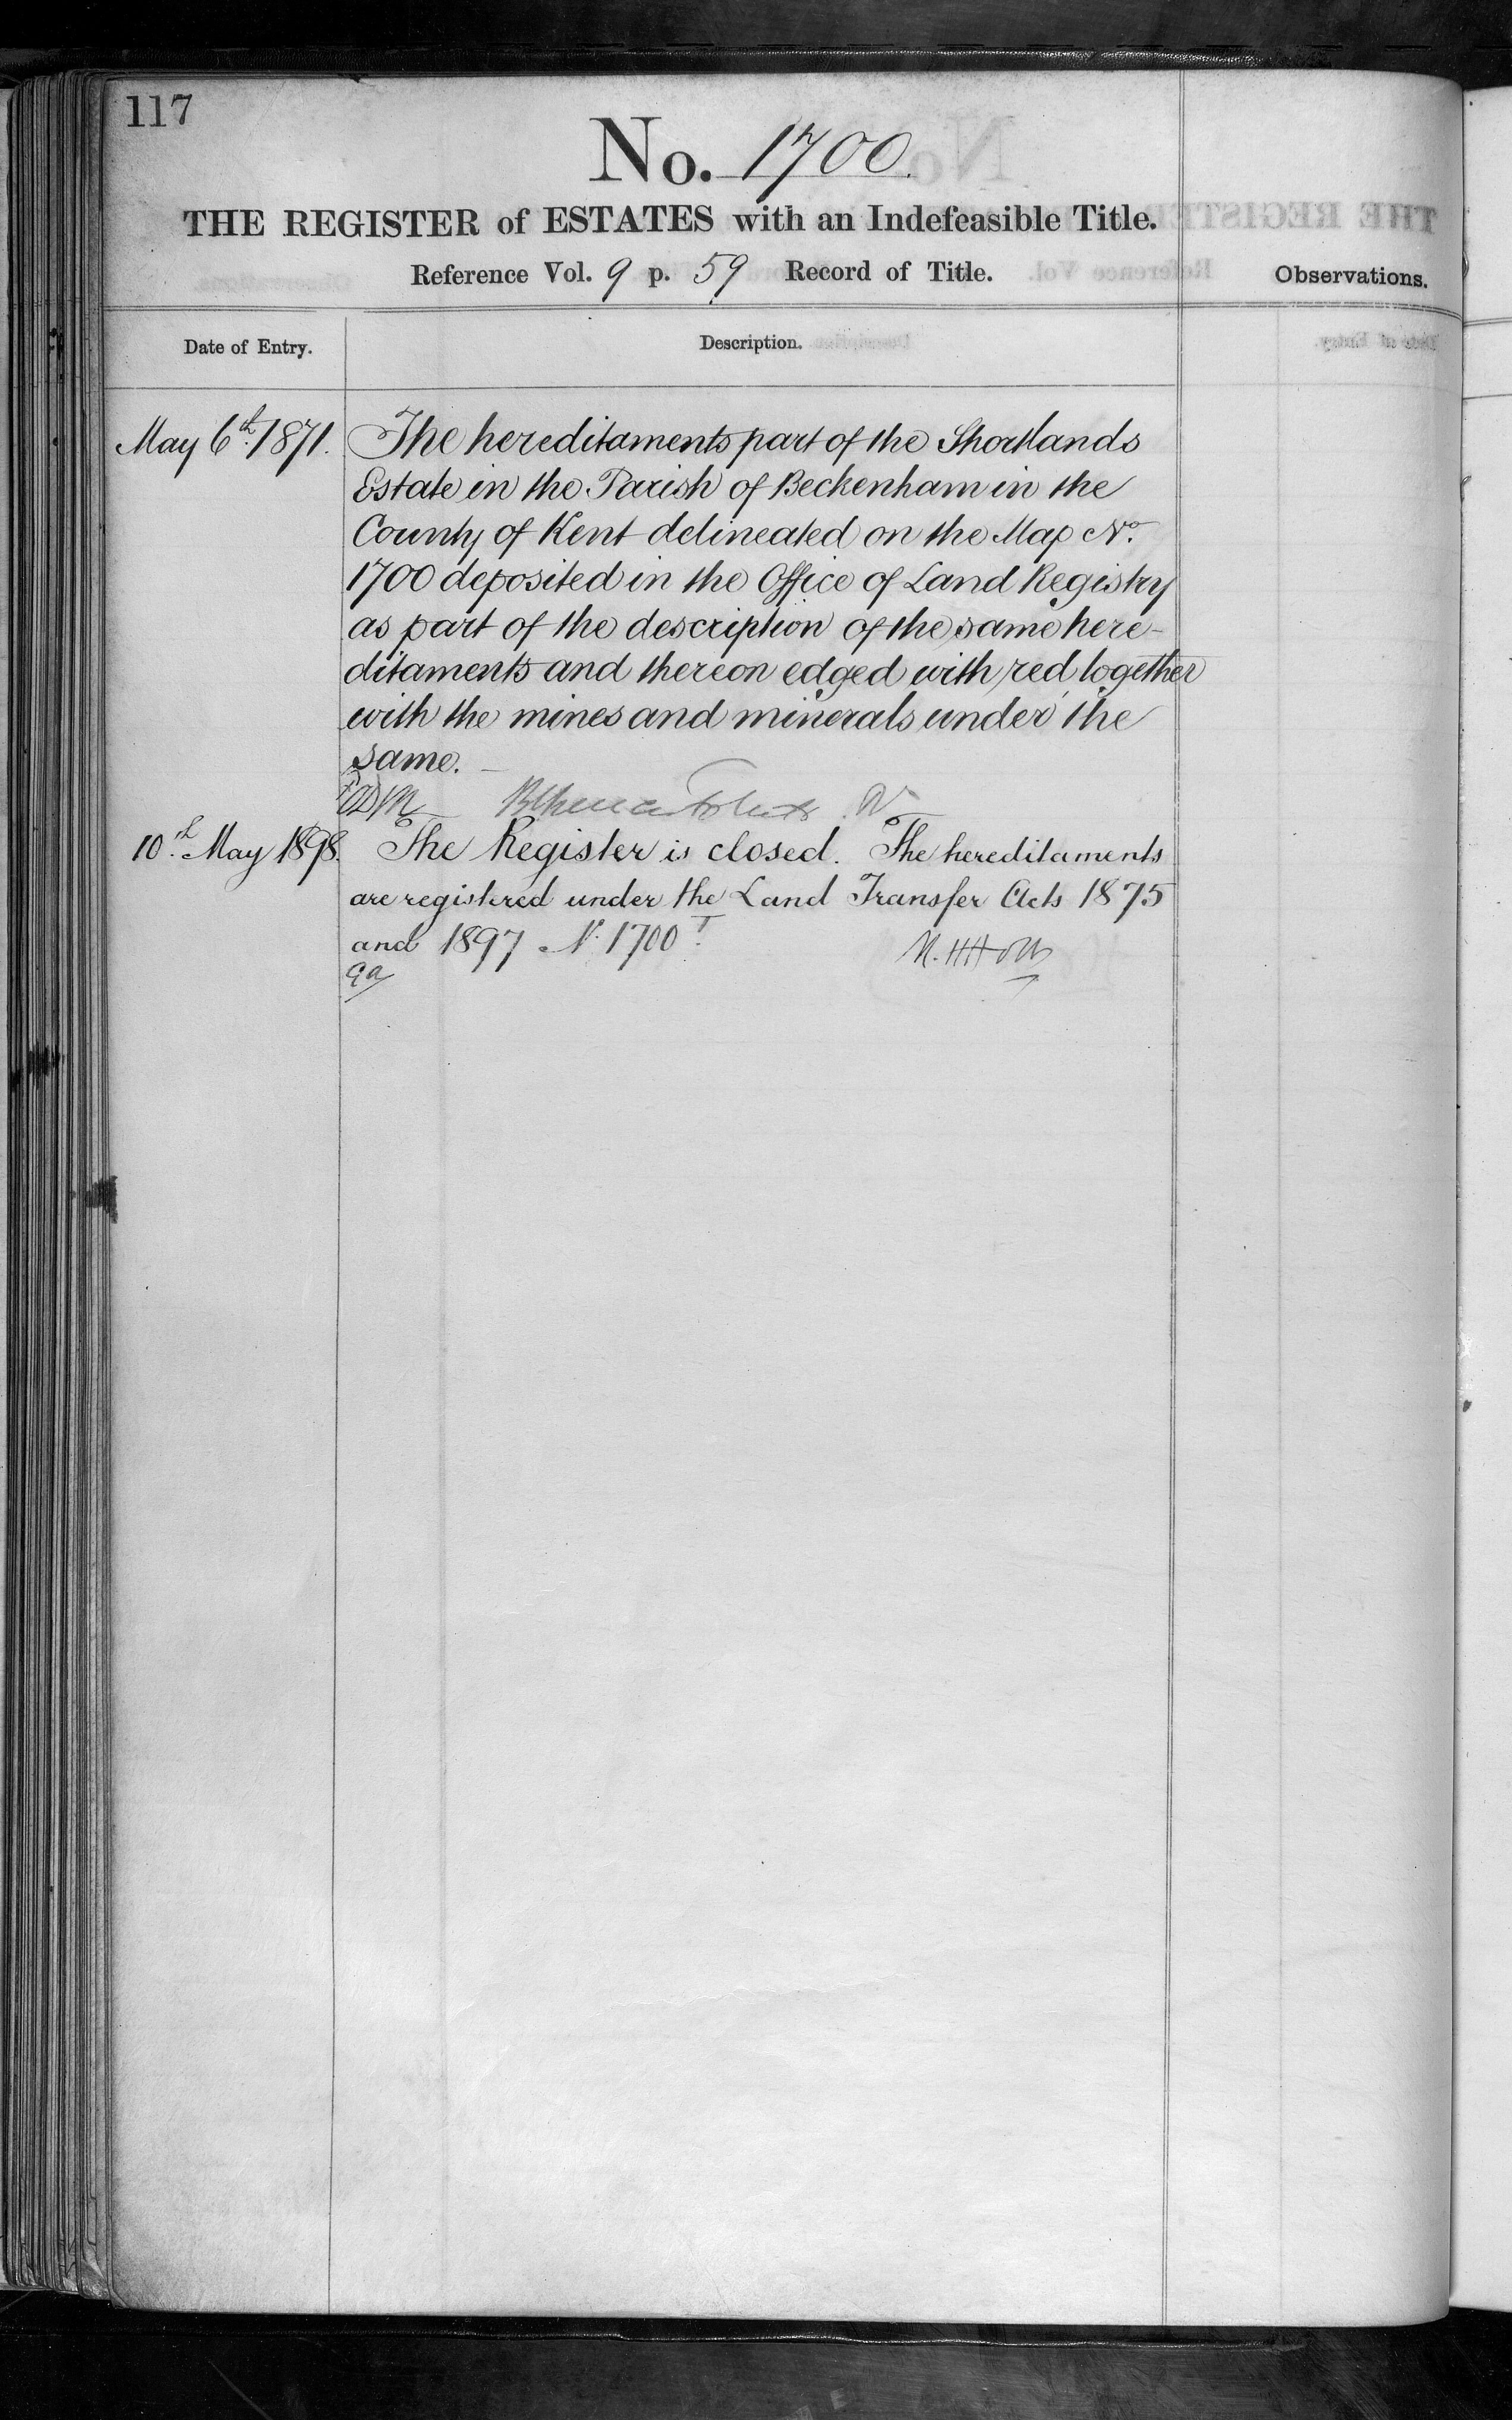 117
No. 1700.
THE REGISTER of ESTATES with an Indefeasible Title.
Reference Vol. 9 p. 59 Record of Title.
Observations.
Date of Entry.
Description.
May 6th. 1871.
The hereditaments part of the Shortlands
Estate in the Parish of Beckenham in the
County of Kent delineated on the Map No.
1700 deposited in the Office of Land Registry
as part of the description of the same here-
ditaments and thereon edged with red together
with the mines and minerals under the
same.
10th. May 1898.
The Register is closed. The hereditaments
are registered under the Land Transfer Acts 1875
and 1897 No. 1700T.